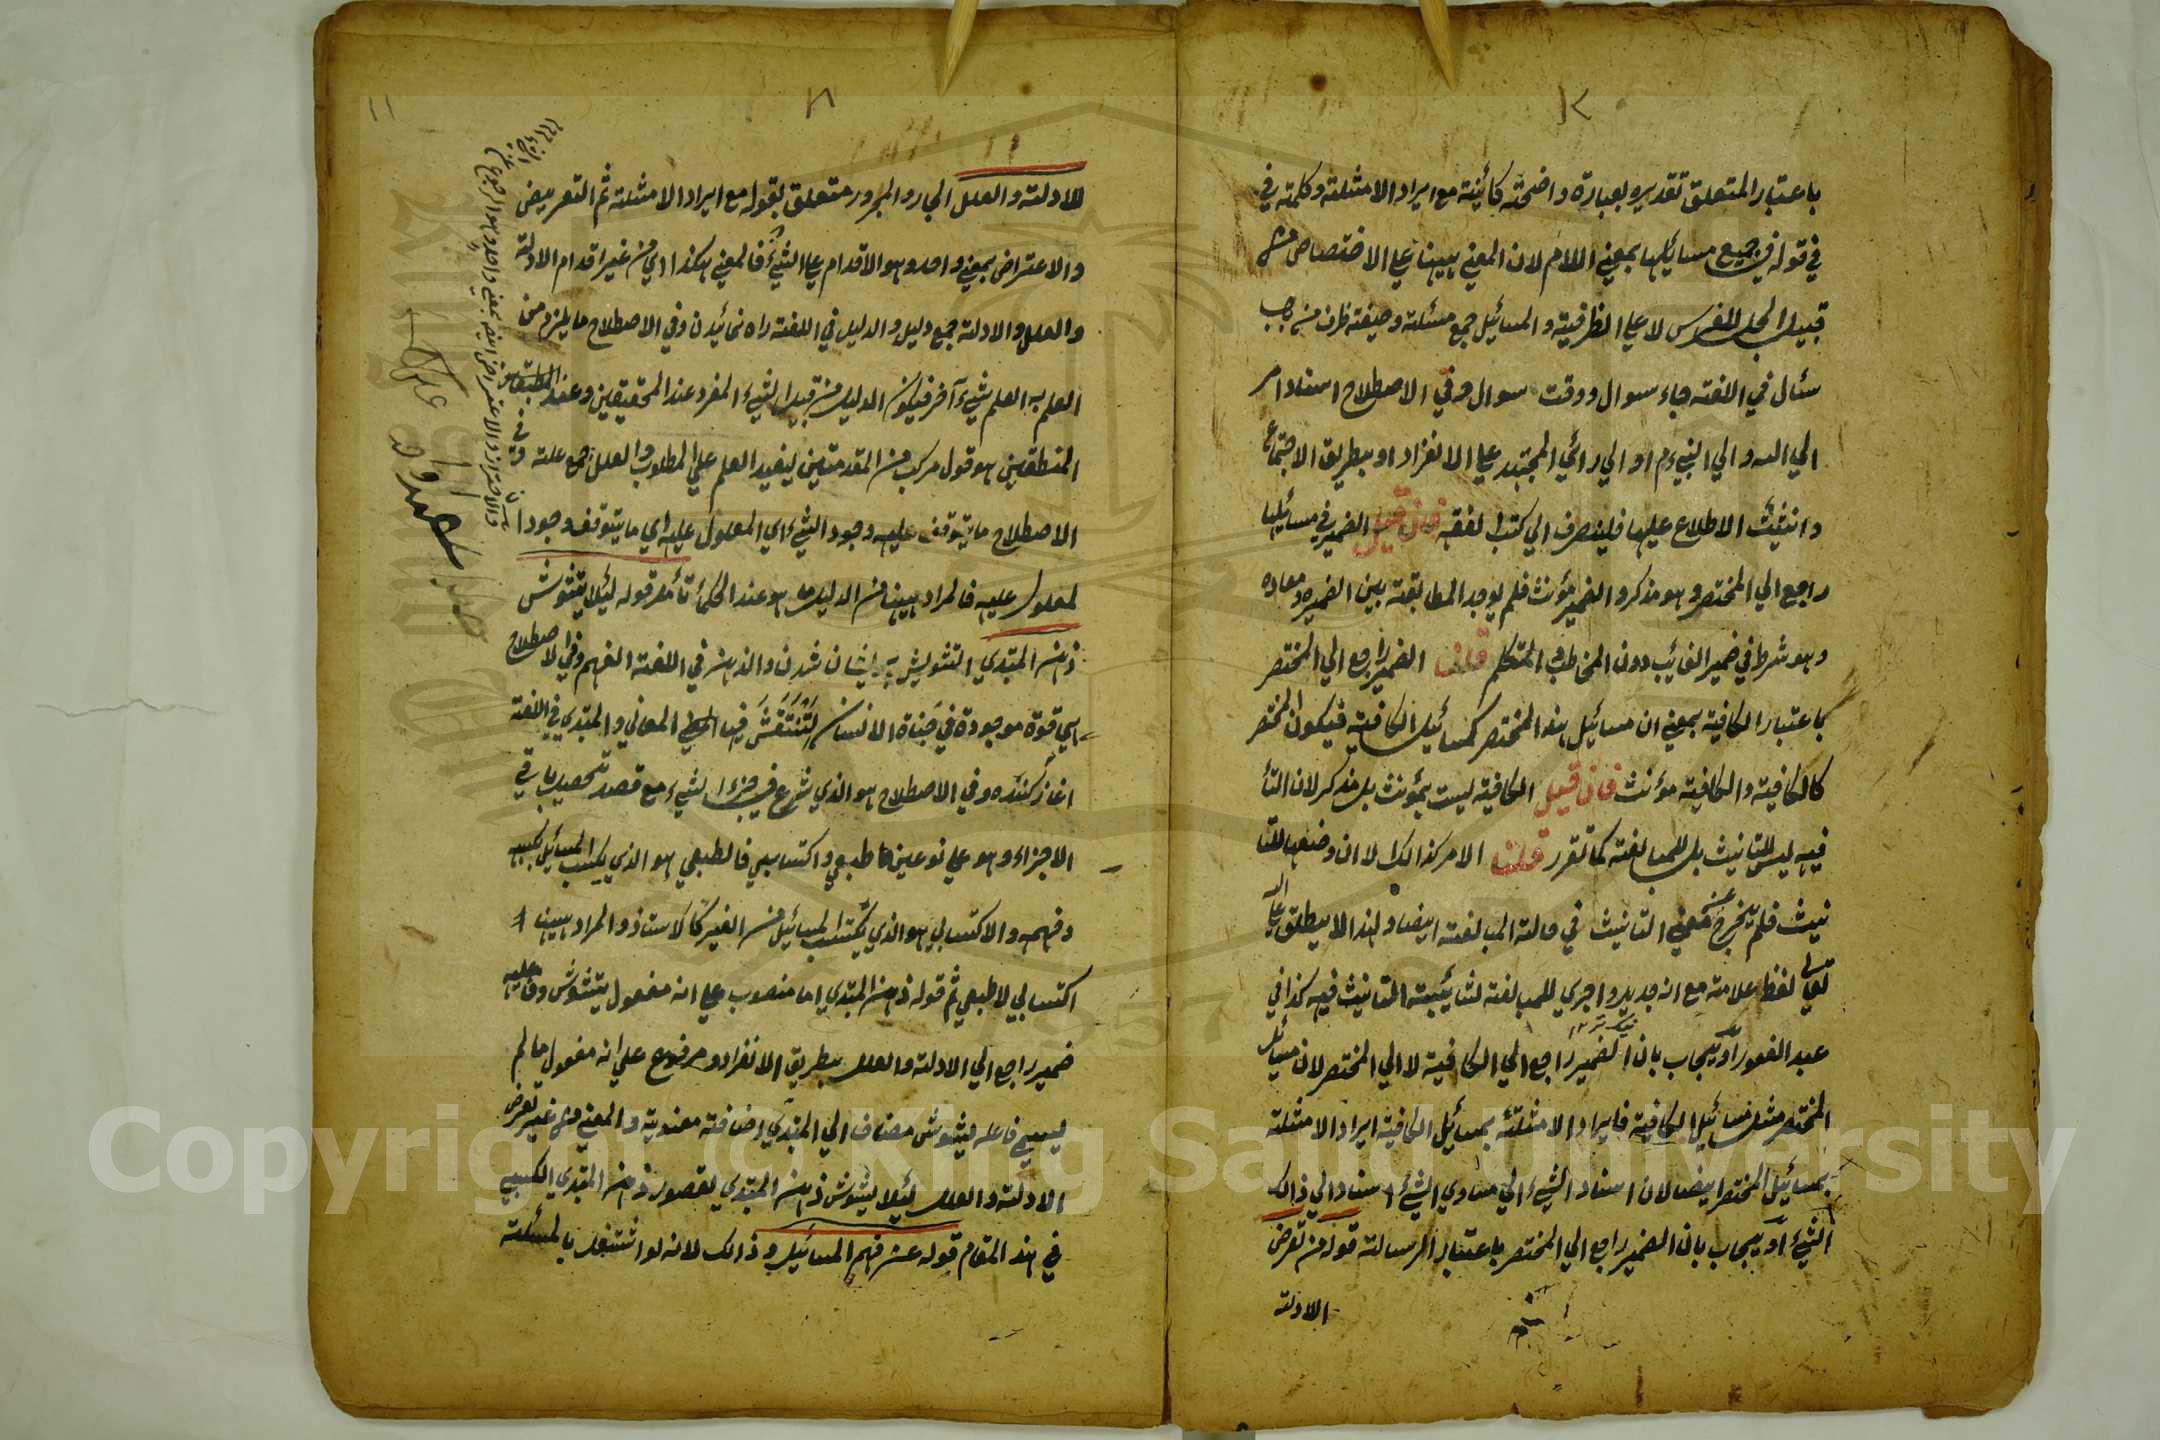 باعتبار المتعلق تقديره بعبارة واضحة كائنة مع ايراد الامثلة وكلمة في
في قوله في جميع مسائلها بمعني اللام لان المعني ههنا علي الاختصاص من
قبيل الجل للفرس لا علي الظرفية والمسائيل جمع مسئلة وصيغته ظرف من باب
سئال في اللغة جاء سوال ووقت سوال وفي الاصطلاح اسناد امر
الي الله والي النبي ءم او الي رائي المجتهد علي الانفراد او بطريق الاجتماع
وانشئت الاطلاع عليها فلينصرف الي كتب الفقه فان قيل الضمير في مسائيلها
راجع الي المختصر وهو مذكر والضمير مؤنث فلم يوجد المطابقة بين الضمير ومعاده
وهو شرط في ضمير الغائب دون المخاطب والمتكلم قلنا الضمير راجع الي المختصر
باعتبار الكافية بمعني ان مسائيل هذا المختصر كمسائيل الكافية فيكون المختصر
كالكافية والكافية مؤنث فان قيل الكافية ليست بمؤنث بل مذكر لان التأ
فيه ليس للتانيث بل للمبالغة كما تقرر قلنا الامر كذالك لان وضعها للتا
نيث فلم يخرج عن معني التانيث في حالة المبالغة ايضا ولهذا لا يطلق علي الله
تعالي لفظ علامة مع انه جديد واجري للمبالغة لشائبة التانيث فيه كذا في
عبد الغفور او يجاب بان الضمير راجع الي الكافية لا الي المختصر لان مسائل
المختصر مثل مسائيل الكافية فايراد الامثلة بمسائيل الكافية ايراد الامثلة
بمسائيل المختصر ايضا لان اسناد الشيء الي مساوي الشيء اسناد الي ذالك
الشيء او يجاب بان الضمير راجع الي المختصر باعتبار الرسالة قوله من تعرض
الادلة
١١
للادلة والعلل الجار والمجرور متعلق بقوله مع ايراد الامثلة ثم التعريض
والاعتراض بمعني واحد وهو الاقدام علي الشيء فالمعني هكذا اي من غير اقدام الادلة
والعلل والادلة جمع دليل والدليل في اللغة راه نمائيدن وفي الاصطلاح ما يلزم من
العلم به العلم بشيء آخر فيكون الدليل من قبيل الشيء المفرد عند المحققين وعند
المنطقين هو قول مركب من المقدمتين ليفيد العلم علي المطلوب والعلل جمع علة وفي
الاصطلاح ما يتوقف عليه وجود الشيء اي المعلول عليه اي ما يتوقف وجود ا
لمعلول عليه فالمراد ههنا من الدليل ما هو عند الحكماء تأمل قوله لئلا يتشوش
ذهن المبتدي التشويش پريشان شدن والذهن في اللغة الفهم وفي الاصطلاح
هي قوة موجودة في جناة الانسان لتنتقش فيها المعاني والمبتدي في اللغة
اغاز كننده وفي الاصطلاح هو الذي شرع في جزء الشيء مع قصد تحصيل باقي
الاجزاء وهو علي نوعين طبعي واكتسابي فالطبعي هو الذي يكسب المسائيل بكسبه
وفهمه والاكتسابي هو الذي يكتسب المسائيل من الغير كالاستاذ والمراد ههنا
اكتسابي لا طبعي ثم قوله ذهن المبتدي اما منصوب علي انه مفعول يتشوش وفاعله
ضمير راجع الي الادلة والعلل بطريق الانفراد ومرفوع علي انه مفعول ما لم
يسمي فاعله يشوش مضاف الي المبتدي اضافة معنوية والمعني من غير تعرض
الادلة والعلل لئيلا يشوش ذهن المبتدي لقصور ذهن المبتدي الكسبي
في هذا المقام قوله عن فهم المسائيل وذالك لانه لو اشتغل بالمسئلة